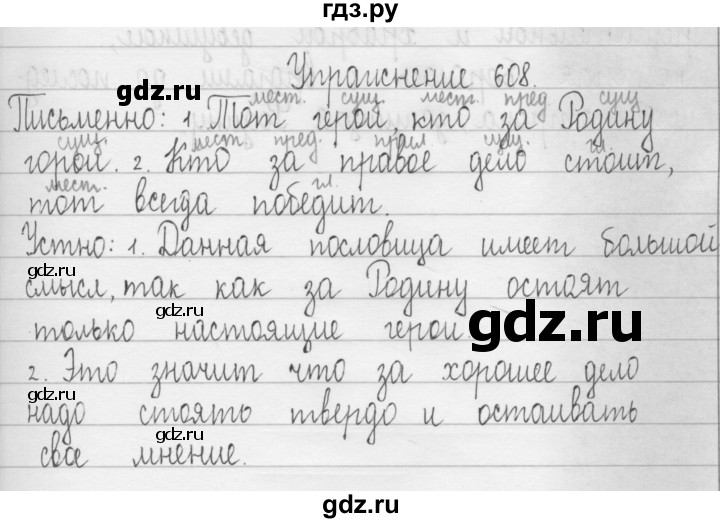 гдз.ру
Упражнение 608.
мест. сущ. мест. пред. сущ.
Письменно: 1 Тот герой, кто за Родину
сущ. мест. пред. прил. сущ. гл.
горой. 2. Кто за правое дело стоит,
мест. гл.
тот всегда победит.
Устно: 1. Данная пословица имеет большой
gdz.ru
смысл, так как за Родину остоят
gdz.ru
только настоящие герои
gdz.ru
2. Это значит что за хорошее дело
gdz.ru
надо стоять твердо и остаивать
gdz.ru
свое мнение.
gdz.ru